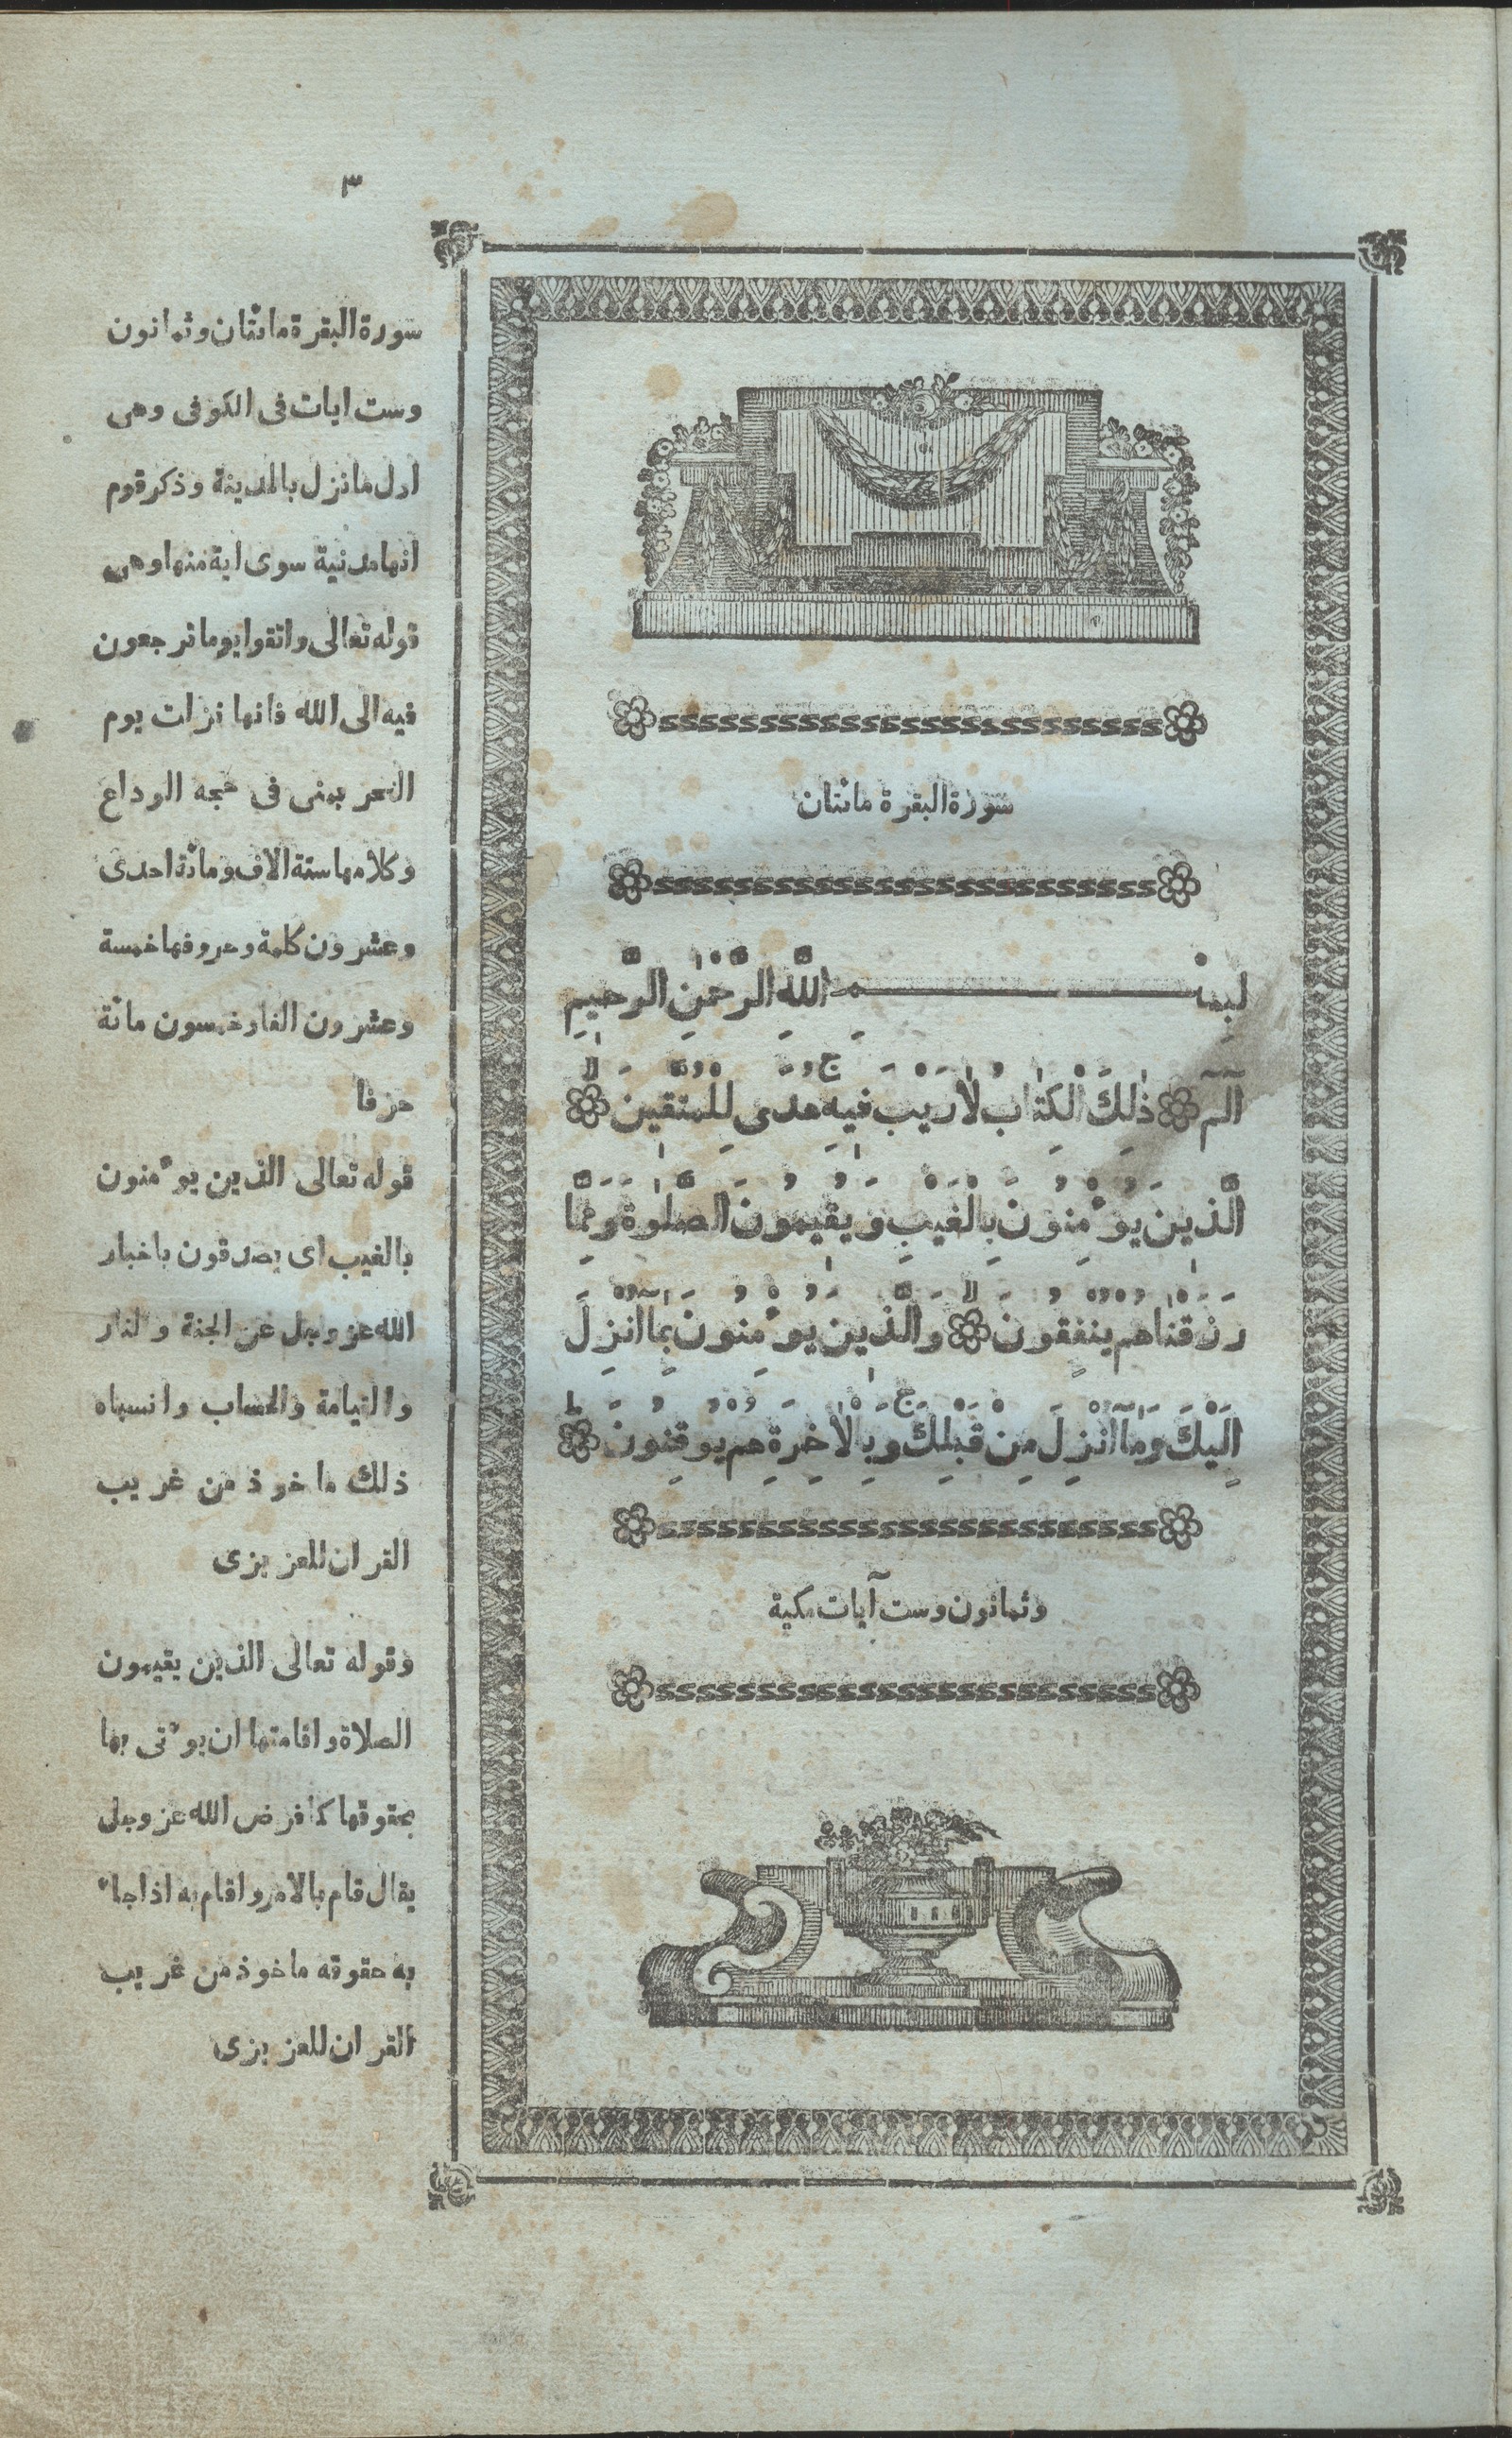 ٣
سورة البقرة مائتان
بسم الله الرَّحْمٰنِ الرَّحيمِ
آلٓمٓ ذٰلِكَ الْكِتٰابُ لاٰرَيْبَ فيهِ هُدىً لِلْمُتَّقينَ
الَّذينَ يُوءْمِنُونَ بِالْغَيْبِ وَيُقيمُونَ الصَّلٰوةَ وَمِمَّا
رَزَقْنٰاهُمْ يُنْفِقُونَ وَالَّذينَ يُوءْمِنُونَ بِمَٓا اُنْزِلَ
اِلَيْكَ وَمَٓا اُنْزِلَ مِنْ قَبْلِكَ وَبِالْاٰخِرَةِ هُمْ يُوقِنُونَ
وثمانون وست آيات مكية
سورة البقرة مائتان وثمانون
وست ايات فى الكوفى وهى
اول ما نزل بالمدينة وذكر قوم
انها مدنية سوى اية منها وهى
قوله تعالى واتقوا يوما ترجعون
فيه الى الله فانها نزلت يوم
النحر بمنى فى حجه الوداع
وكلامها ستة الاف ومائة احدى
وعشرون كلمة وحروفها خمسة
وعشرون الفا وخمسون مائة
حرفا
قوله تعالى الذين يوءمنون
بالغيب اى يصدقون باخبار
الله عز وجل عن الجنة والنار
والقيامة والحساب وانسباه
ذلك ماخوذ من غريب
القران للعزيزى
وقوله تعالى الذين يقيمون
الصلاة واقامتها ان يوءتى بها
بحقوقها كما فرض الله عز وجل
يقال قام بالامر واقام به اذا جاء
به حقوقه ماخوذ من غريب
القران للعزيزى